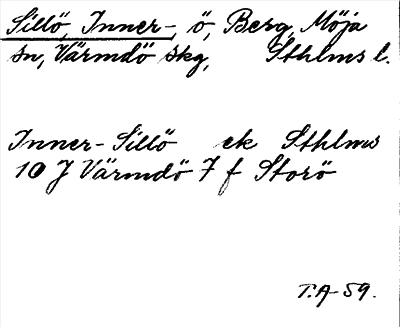 Sillö, Inner-, ö, Berg, Möja
sn, Värmdö skg, Sthlms l.
Inner-Sillö ek Sthlms
10 J Värmdö 7 f Storö
T.A-59.